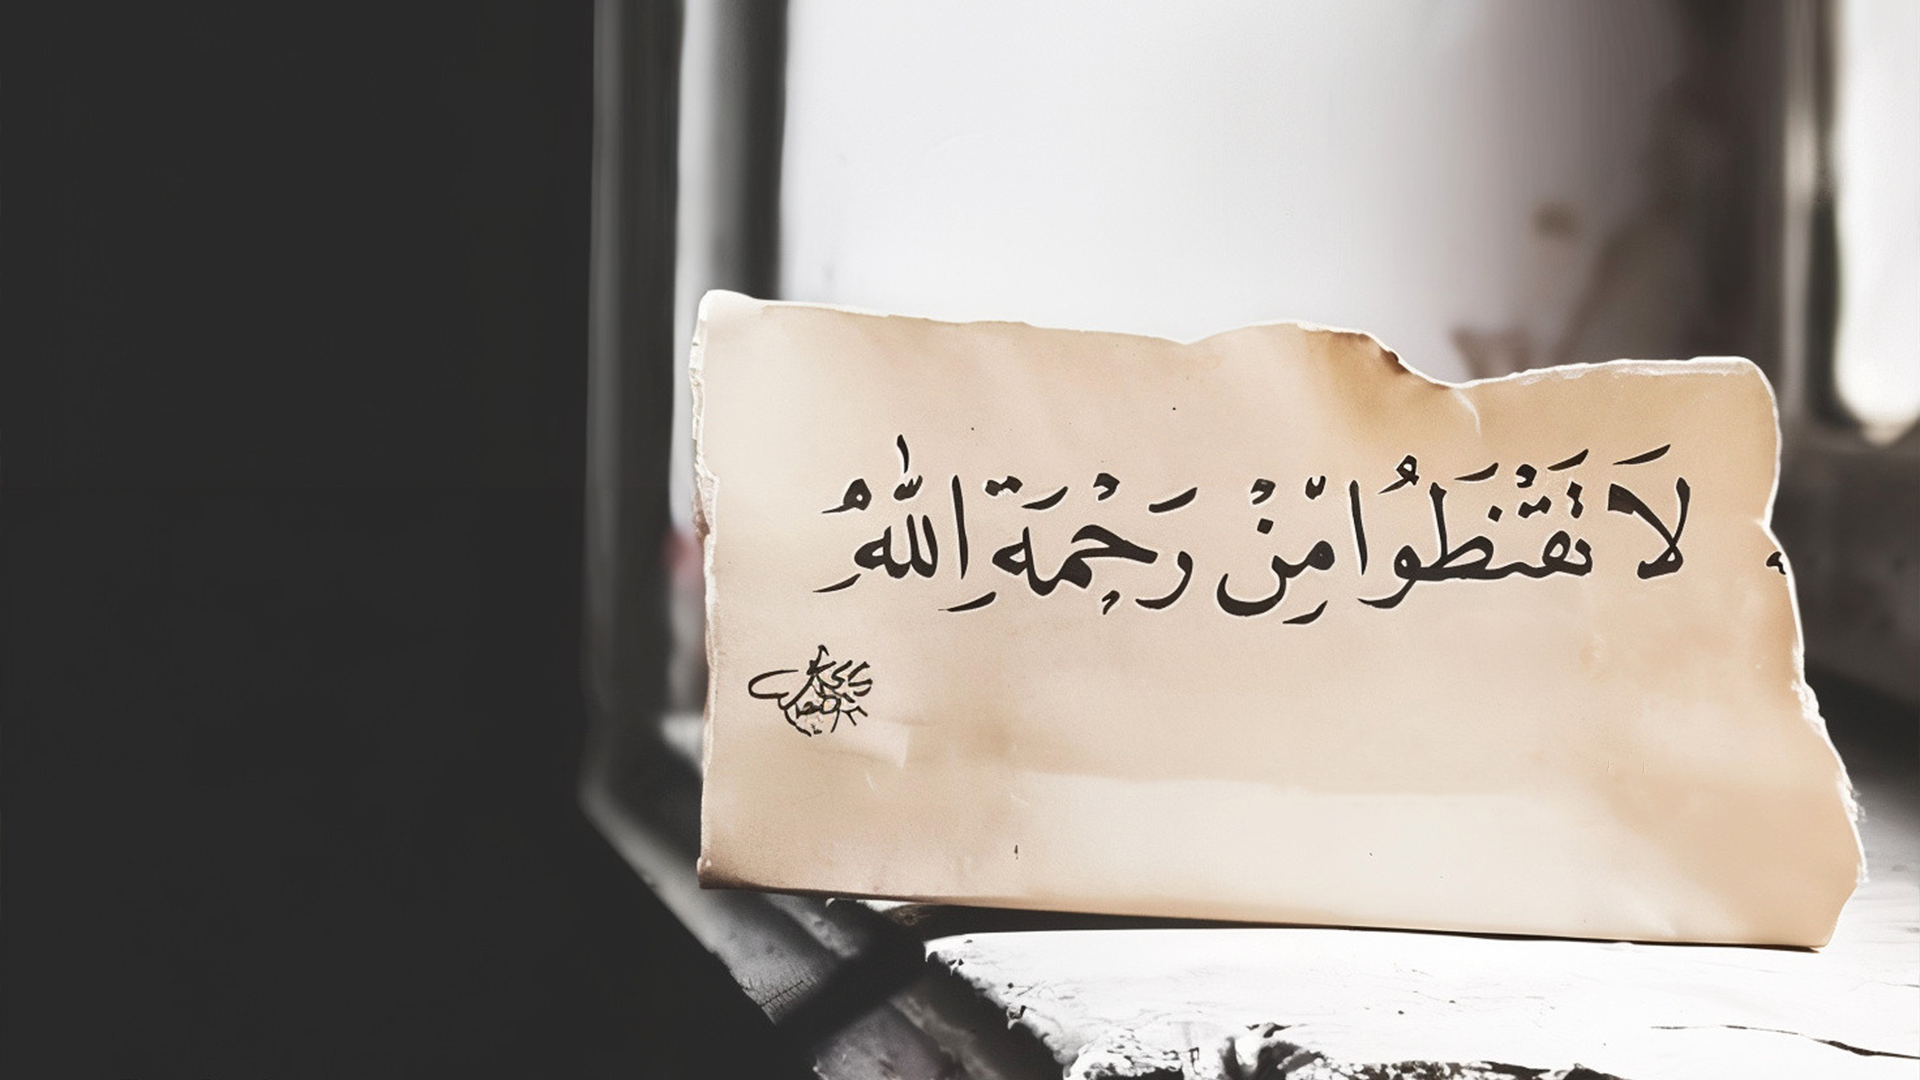 لَا تَقْنَطُوا مِّنْ رَحْمَةِ اللَّهُ